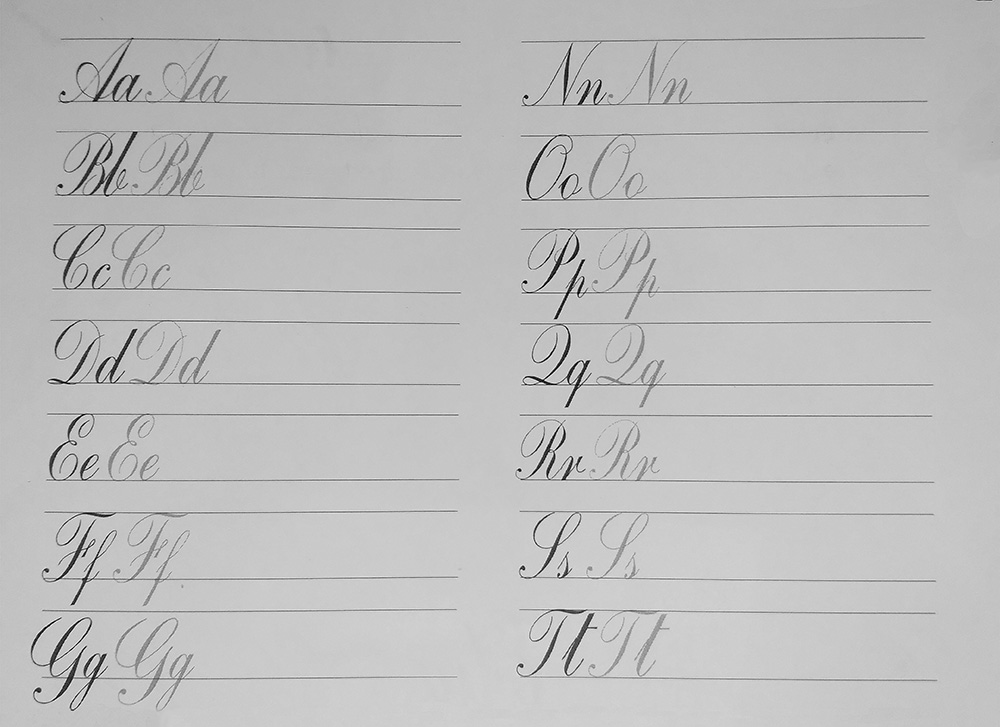 Aa Aa
Bb Bb
Cc Cc
Dd Dd
Ee Ee
Ff Ff
Gg Gg
Nn Nn
Oo Oo
Pp Pp
Qq Qq
Rr Rr
Ss Ss
Tt Tt